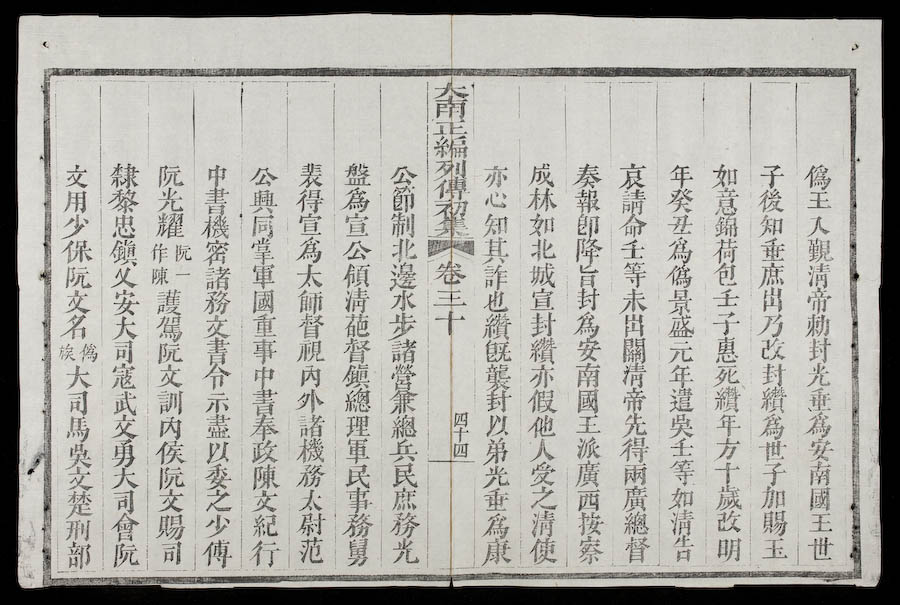 偽王入覲清帝勅封光垂為安南國王世
子後知垂庶出乃改封纘為世子加賜玉
如意錦荷包壬子惠死纘年方十歲改明
年癸丑為偽景盛元年遣吳壬等如清告
哀請命壬等未出關清帝先得兩廣總督
奏報卽降旨封為安南國王派廣西按察
成林如北城宣封纘亦假他人受之清使
亦心知其詐也纘旣襲封以弟光垂為康
大南正編列傳初集 卷三十 四十四
公節制北邊水步諸營兼總兵民庶務光
盤為宣公領清葩督鎮總理軍民事務舅
裴得宣為太師督視內外諸機務太尉范
公興同掌軍國重事中書奉政陳文紀行
中書機密諸務文書令示盡以委之少傅
阮光耀阮一作陳護駕阮文訓內侯阮文賜司
隸黎忠鎮乂安大司寇武文勇大司會阮
文用少保阮文名偽族大司馬吳文楚刑部